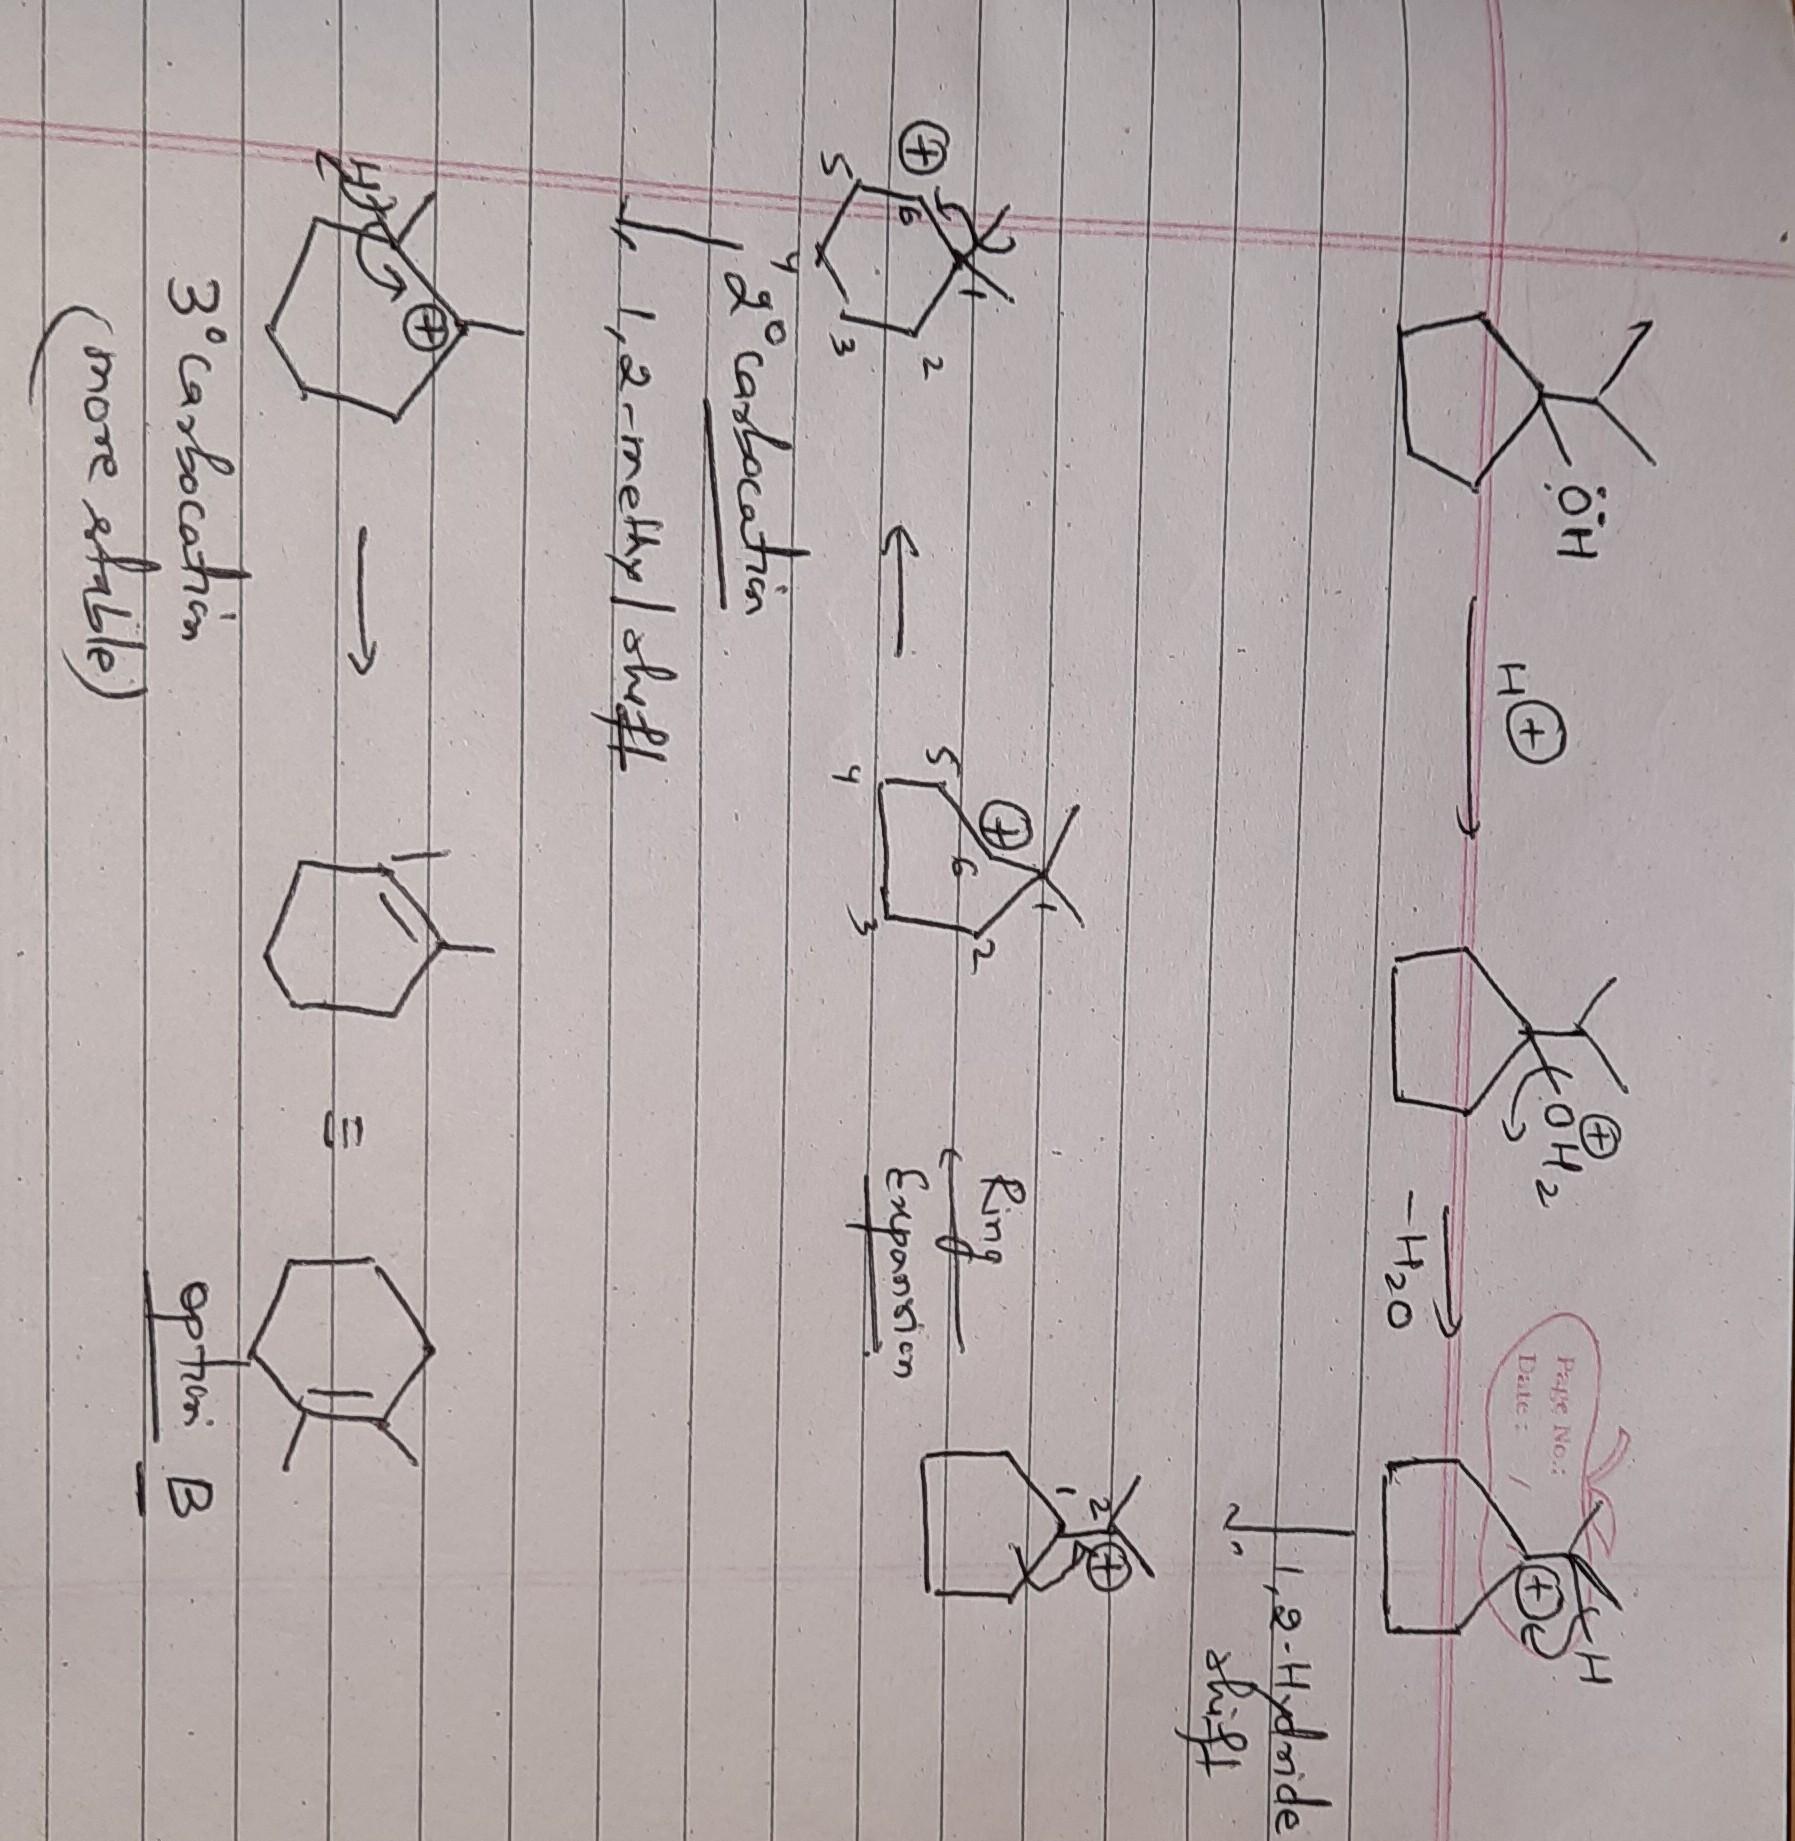 Page No.:
Date:
ÖH
H⊕
⊕
OH2
-H2O
H
⊕
1,2-Hydride
shift
1
2
⊕
Ring
Expansion
⊕
1
2
3
4
5
6
⊕
1
2
3
4
5
6
2° carbocation
1,2-methyl shift
H
⊕
≡
3° carbocation
(more stable)
option B